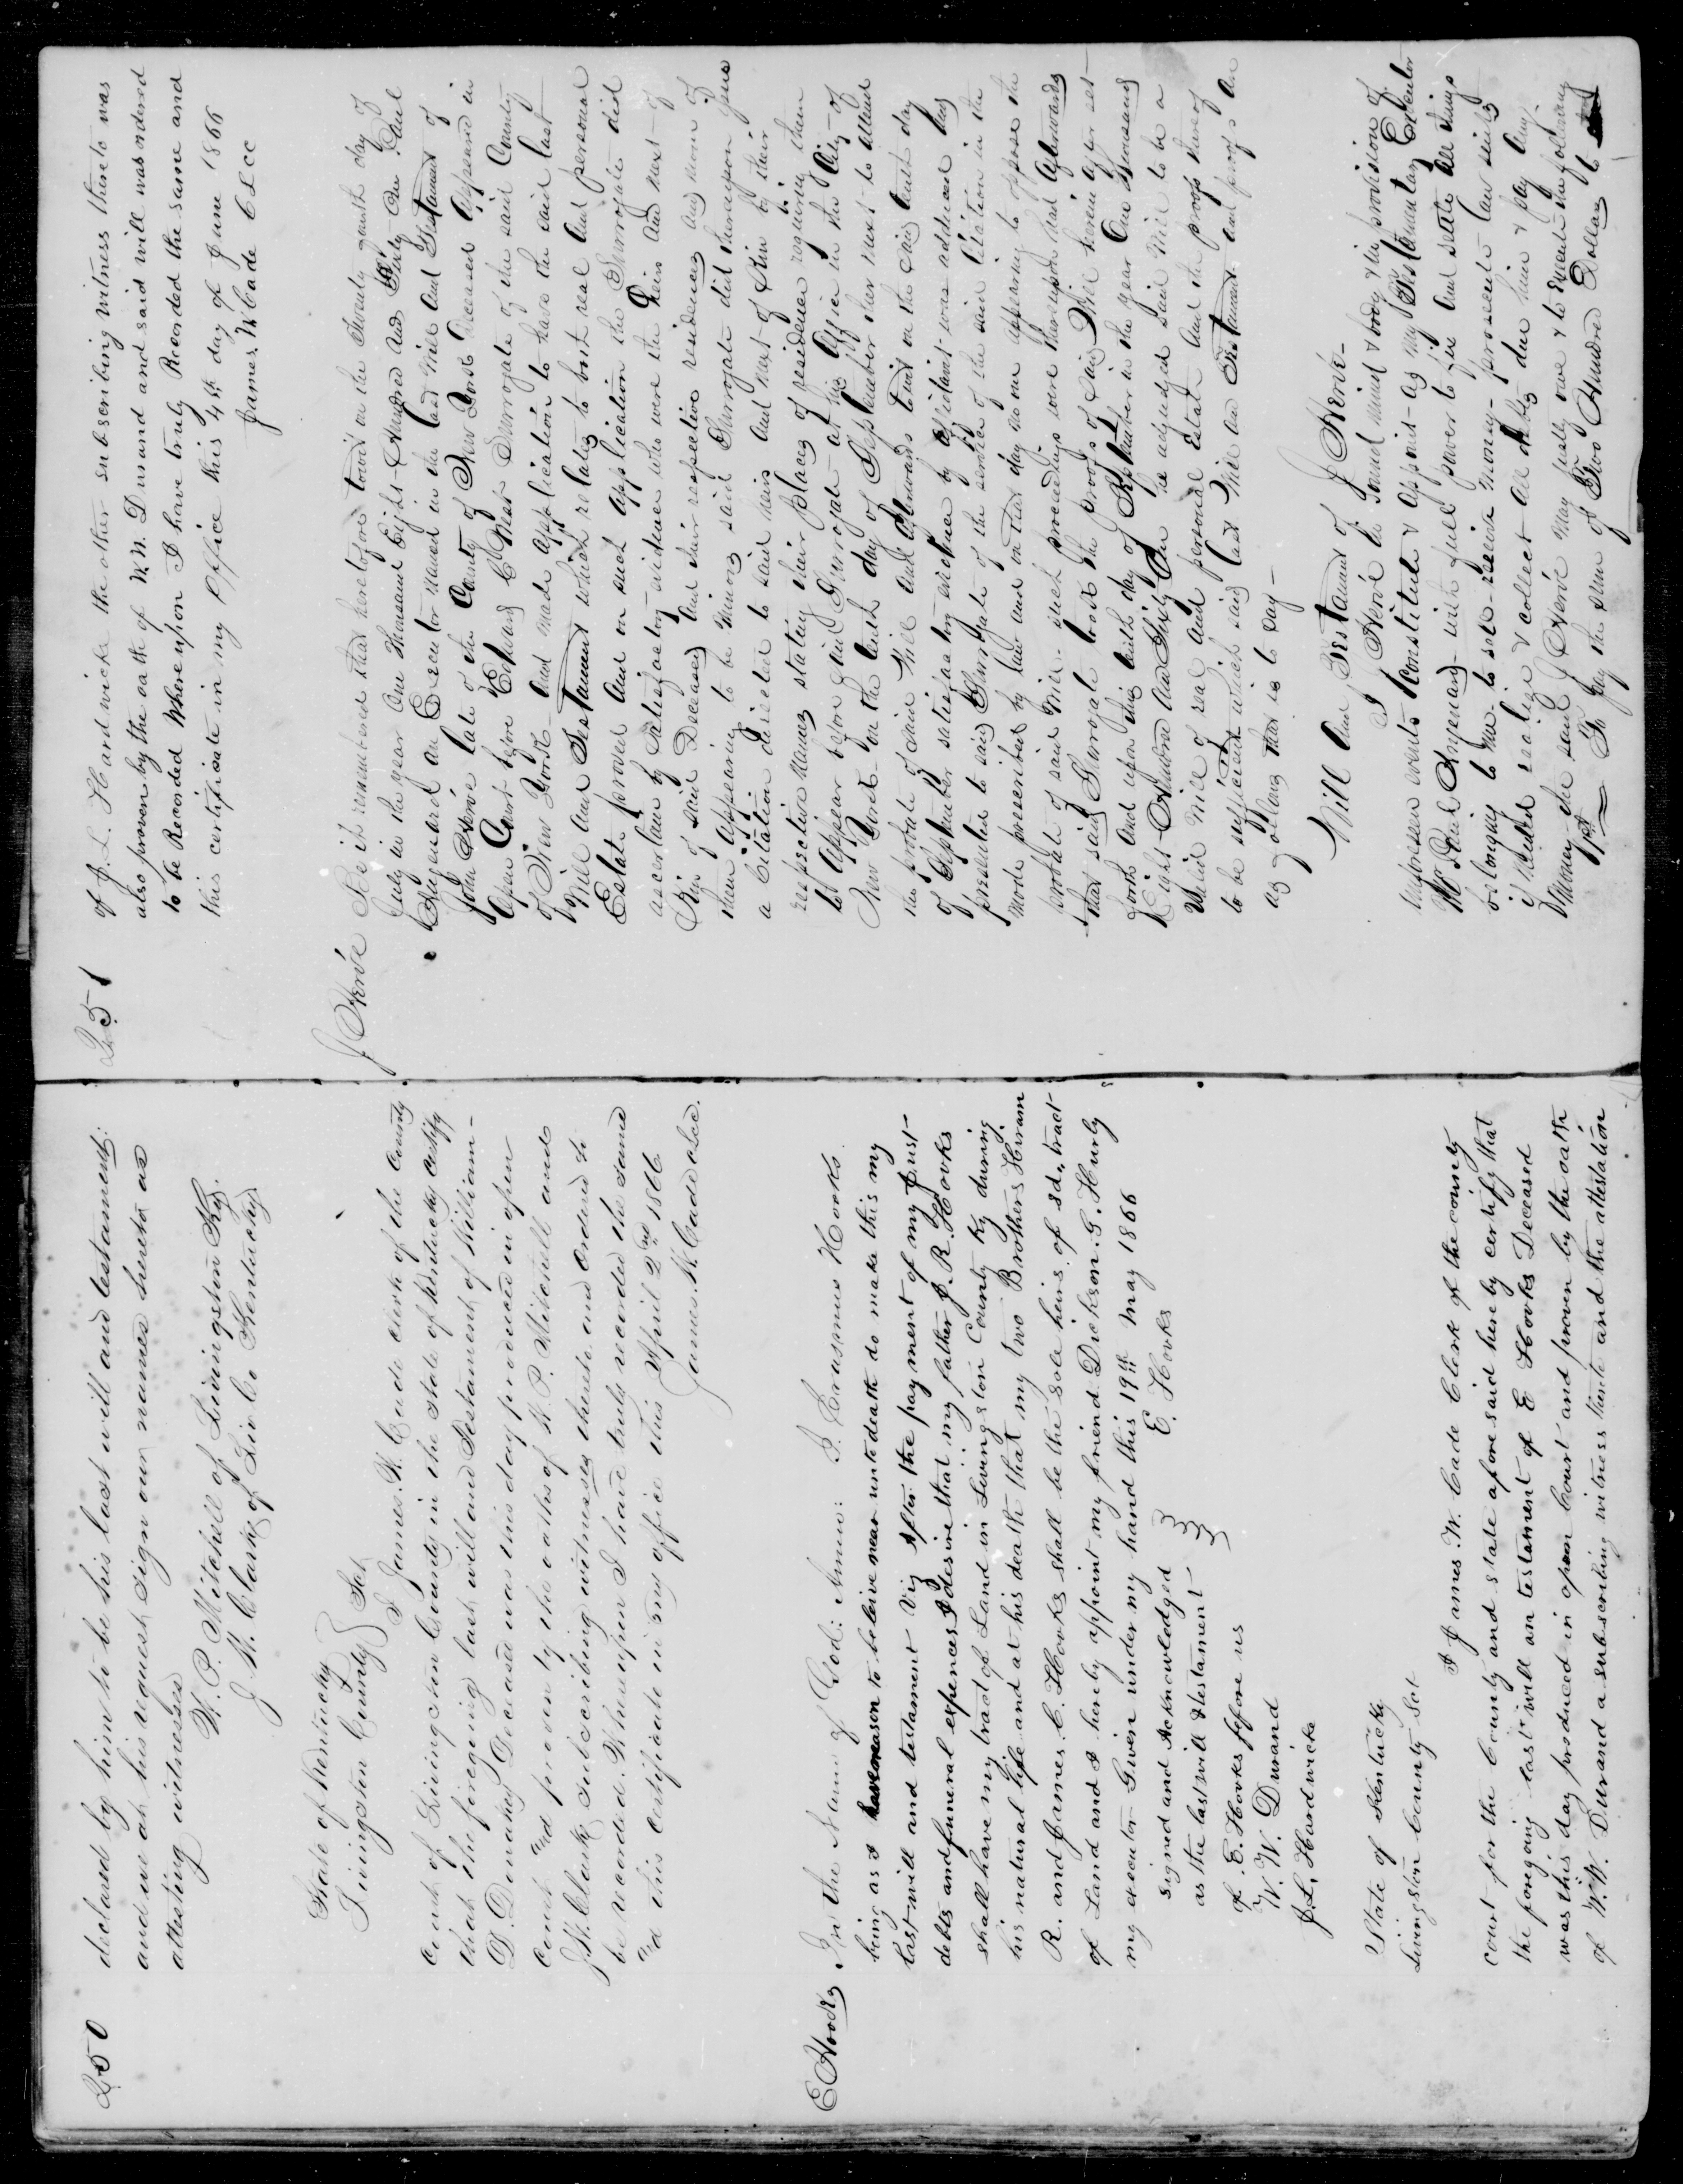 250
declared by him to be his last will and testament:
and we at his request sign our names hereto as
attesting witnesses
W. P. Mitchell of Livingston Ky.
J. W. Clark of Liv Co Kentucky
State of Kentucky
Livingston County } Sct
I James. W. Cade clerk of the County
Court of Livingston County in the State of Kentucky certify
that the foregoing last will and Testament of William-
D. Donakey Deceased was this day produced in open
Court and proven by the oaths of W. P. Mitchell and
J. W. Clark subscribing witnesses thereto and ordered to
be recorded. Whereupon I have truly recorded the same
and this certificate in my office this April 2nd 1866
James. W. Cade clk.
E Hooks
In the Name of God: Amen: I. Erasmus Hooks
being as I have reason to beleive near unto death do make this my
last will and testament viz After the payment of my just
debts and funeral expences I desire that my father J. R. Hooks
shall have my tract of Land in Livingston County Ky during
his natural life and at his death that my two Brothers Hiram
R. and James. C. Hooks shall be the sole heirs of sd. tract
of Land and I hereby appoint my friend Dickson. G. Hurly
my executor Given under my hand this 19th May 1866
signed and Acknowledged } E. Hooks
as the last will & testament
of E. Hooks before us
W. W. Durand
J. L. Hardwicke
State of Kentucky
Livingston County Sct
I James. W. Cade Clerk of the county
court for the County and state aforesaid hereby certify that
the foregoing last will an testament of E Hooks Deceased
was this day produced in open Court and proven by the oath
of W. W. Durand a subscribing witness thereto and the attestation
251
of J. L. Hardwicke the other subscribing witness thereto was
also proven by the oath of W. W. Durand and said will was ordered
to be Recorded Whereupon I have truly Recorded the same and
this certificate in my office this 4th day of June 1866
James. W Cade CLCC
J Hervé
Be it remembered that heretofore towit on the Twenty day of
July in the year One Thousand Eight Hundred and Sixty One Paul
Huguenard an Executor named in the last Will and Testament of
John Hervé late of the County of New York Deceased Appeared in
Open Court before Edward C West Surrogate of the said County
of New York and made Application to have the said last
Will and Testament which relates to both real and personal
Estate proved And on such application the Surrogate did
ascertain by satisfactory evidence who were the Heirs and next of
Kin of said Deceased and their respective residences and none of
them appearing to be Minors said Surrogate did thereupon issue
a Citation directed to said heirs and next of Kin by their
respective names stating their places of residence requiring them
to appear before said Surrogate at his Office in the City of
New York on the tenth day of September then next to attend
the probate of said Will and Afterwards towit on the said tenth day
of September satisfactory evidence by affidavit was adduced and
presented to said Surrogate of the service of the said Citation in the
mode prescribed by law and on that day no one appearing to oppose the
probate of said Will such proceedings were thereupon had Afterwards
that said Surrogate took the proofs of said Will herein after set
forth And upon this tenth day of September in the year One Thousand
Eight Hundred And Sixty One he adjudged said Will to be a
Valid Will of real And personal Estate and the proofs thereof
to be sufficient which said last Will and Testament and proofs are
as follows that is to say —
Will And Testament of J Hervé-
I J Hervé in sound mind & body & in provision of
unforseen events Constitute & Appoint as my Testamentary Executor
Mr Paul Huguenard with full power to fix and settle all things
belonging to me. to sell - receive money - prosecute law suits
if needed realize & collect all debts due him & pay any
Whom the said J Hervé may justly owe & to execute the following
1st To pay the sum of Two Hundred Dollars to